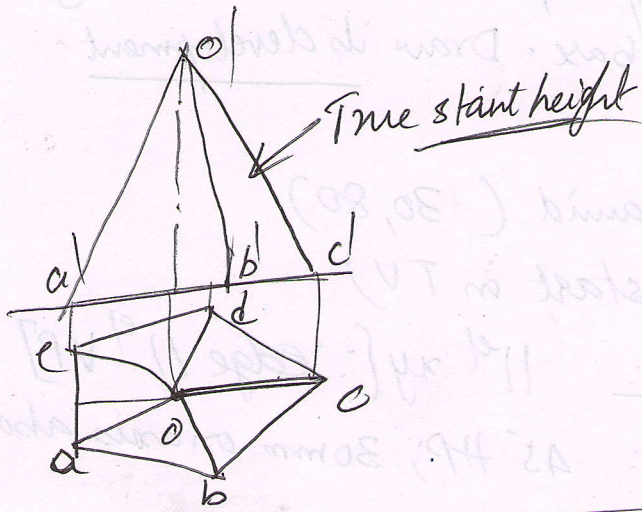 O'
True slant height
a'
b'
c'
d
e
c
o
a
b